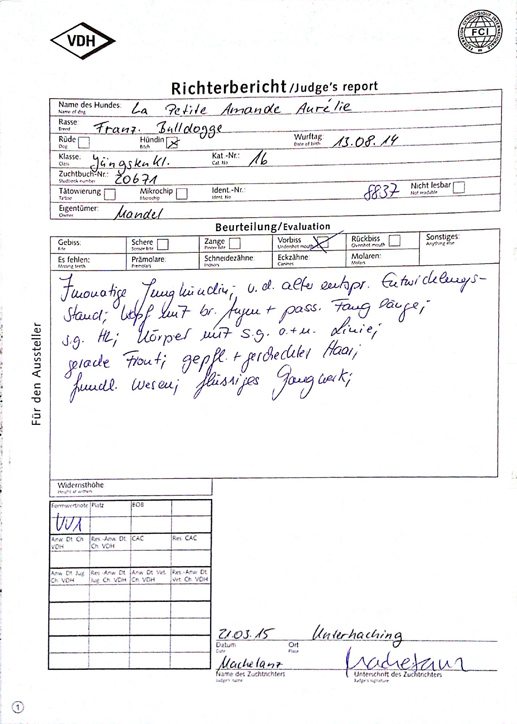 VDH
FCI
Richterbericht/Judge's report
Name des Hundes: La Petite Amande Aurélie
Name of dog
Rasse: Franz. Bulldogge
Breed
Rüde Hündin Wurftag: 13.08.14
Dog Bitch Date of birth
Klasse: Jüngstenkl. Kat.-Nr.: 16
Class Cat. No
Zuchtbuch-Nr.: 20671
Studbook number
Tätowierung Mikrochip Ident.-Nr.: 8837 Nicht lesbar
Tattoo Microchip Ident. No Not readable
Eigentümer: Mandel
Owner
Beurteilung/Evaluation
Gebiss: Schere Zange Vorbiss Rückbiss Sonstiges:
Bite Scissor Bite Pincer Bite Undershot mouth Overshot mouth Anything else
Es fehlen: Prämolare: Schneidezähne: Eckzähne Molaren:
Missing teeth Premolars Incisors Canines Molars
7monatige Junghündin; u.d. alter entspr. Entwicklungs-
stand; Kopf mit br. Augen + pass. Fang länge;
s.g. HL; Körper mit s.g. o.+u. Linie;
gerade Front; gepfl. + gescheckter Haar;
freundl. Wesen; flüssiges Gangwerk;
Für den Aussteller
Widerristhöhe
Height at withers
Formwertnote Platz BOB
VV1
Anw. Dt. Ch. VDH Res.-Anw. Dt. Ch. VDH CAC Res. CAC
Anw. Dt. Jug. Ch. VDH Res.-Anw. Dt. Jug. Ch. VDH Anw. Dt. Vet. Ch. VDH Res.-Anw. Dt. Vet. Ch. VDH
21.03.15 Unterhaching
Datum Ort
Date Place
Machetanz Machetanz
Name des Zuchtrichters Unterschrift des Zuchtrichters
Judge's name Judge's signature
1